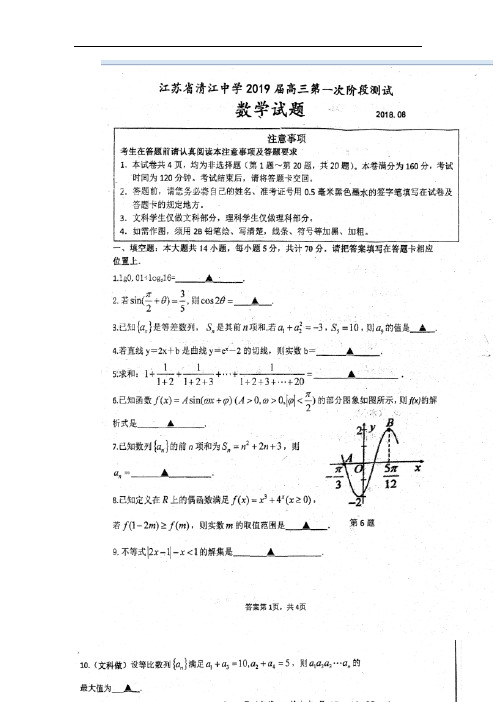 江苏省清江中学 2019 届高三第一次阶段测试
数学试题
2018.08
注意事项
考生在答题前请认真阅读本注意事项及答题要求
1. 本试卷共 4 页，均为非选择题（第 1 题～第 20 题，共 20 题）。本卷满分为 160 分，考试
时间为 120 分钟。考试结束后，请将答题卡交回。
2. 答题前，请您务必将自己的姓名、准考证号用 0.5 毫米黑色墨水的签字笔填写在试卷及
答题卡的规定地方。
3. 文科学生仅做文科部分，理科学生仅做理科部分，
4. 如需作图，须用 2B 铅笔绘、写清楚，线条、符号等加黑、加粗。
一、填空题：本大题共 14 小题，每小题 5 分，共计 70 分。请把答案填写在答题卡相应
位置上.
1.lg0.01+log₂16=____▲____.
2. 若 sin(π/2+θ)=3/5, 则 cos2θ = ▲ .
3.已知{aₙ}是等差数列， Sₙ是其前n项和.若 a₁+a₂²=-3, S₅=10, 则 a₉ 的值是 ▲ .
4.若直线 y=2x+b 是曲线 y=eˣ-2 的切线，则实数 b= ▲ .
5.求和：1+1/(1+2)+1/(1+2+3)+⋯+1/(1+2+3+⋯+20)= ▲ .
6.已知函数 f(x)=Asin(ωx+φ)(A>0,ω>0,|φ|<π/2) 的部分图象如图所示，则 f(x)的解
析式是 ▲ .
7.已知数列{aₙ}的前 n 项和为 Sₙ=n²+2n+3，则
aₙ= ▲ .
2 y B
A O 5π/12 x
-π/3
-2
8.已知定义在 R 上的偶函数满足 f(x)=x³+4ˣ(x≥0)，
若 f(1-2m)≥f(m)，则实数 m 的取值范围是 ▲ .
第 6 题
9. 不等式|2x-1|-x<1的解集是 ▲ .
答案第 1页，共 4页
10.（文科做）设等比数列{aₙ}满足 a₁+a₃=10,a₂+a₄=5，则 a₁a₂a₃⋯aₙ 的
最大值为 ▲ .